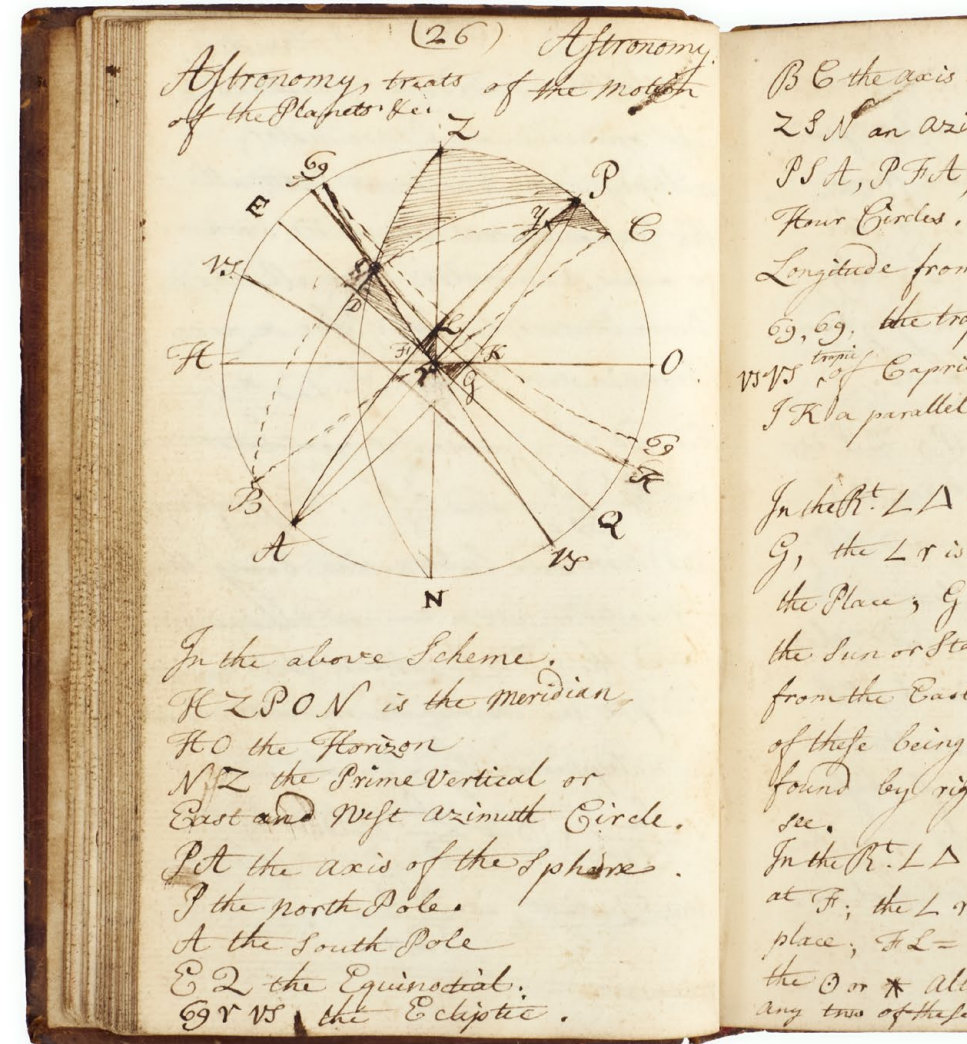 (26) Astronomy.
Astronomy, treats of the motion
of the Planets &c.
Z
69
P
E
C
VS
S
D
L
F
K
H
O
G
69
K
B
Q
A
VS
N
In the above Scheme.
HZPON is the meridian
HO the Horizon
NZ the Prime Vertical or
East and West azimuth Circle.
PA the axis of the Sphere.
P the north Pole.
A the South Pole
EQ the Equinoctial.
69 ♈ VS the Ecliptic.
BC the axis
ZSN an azi
PSA, PFA,
Hour Circles.
Longitude from
69, 69. the tro
tropic
VS VS of Capri
IK a parallel
In the Rt. L Δ
G, the L r is
the Place; G
the Sun or Sta
from the East
of these being
found by rig
see.
In the Rt. L Δ
at F; the L r
place; FL=
the ☉ or * alt
any two of these